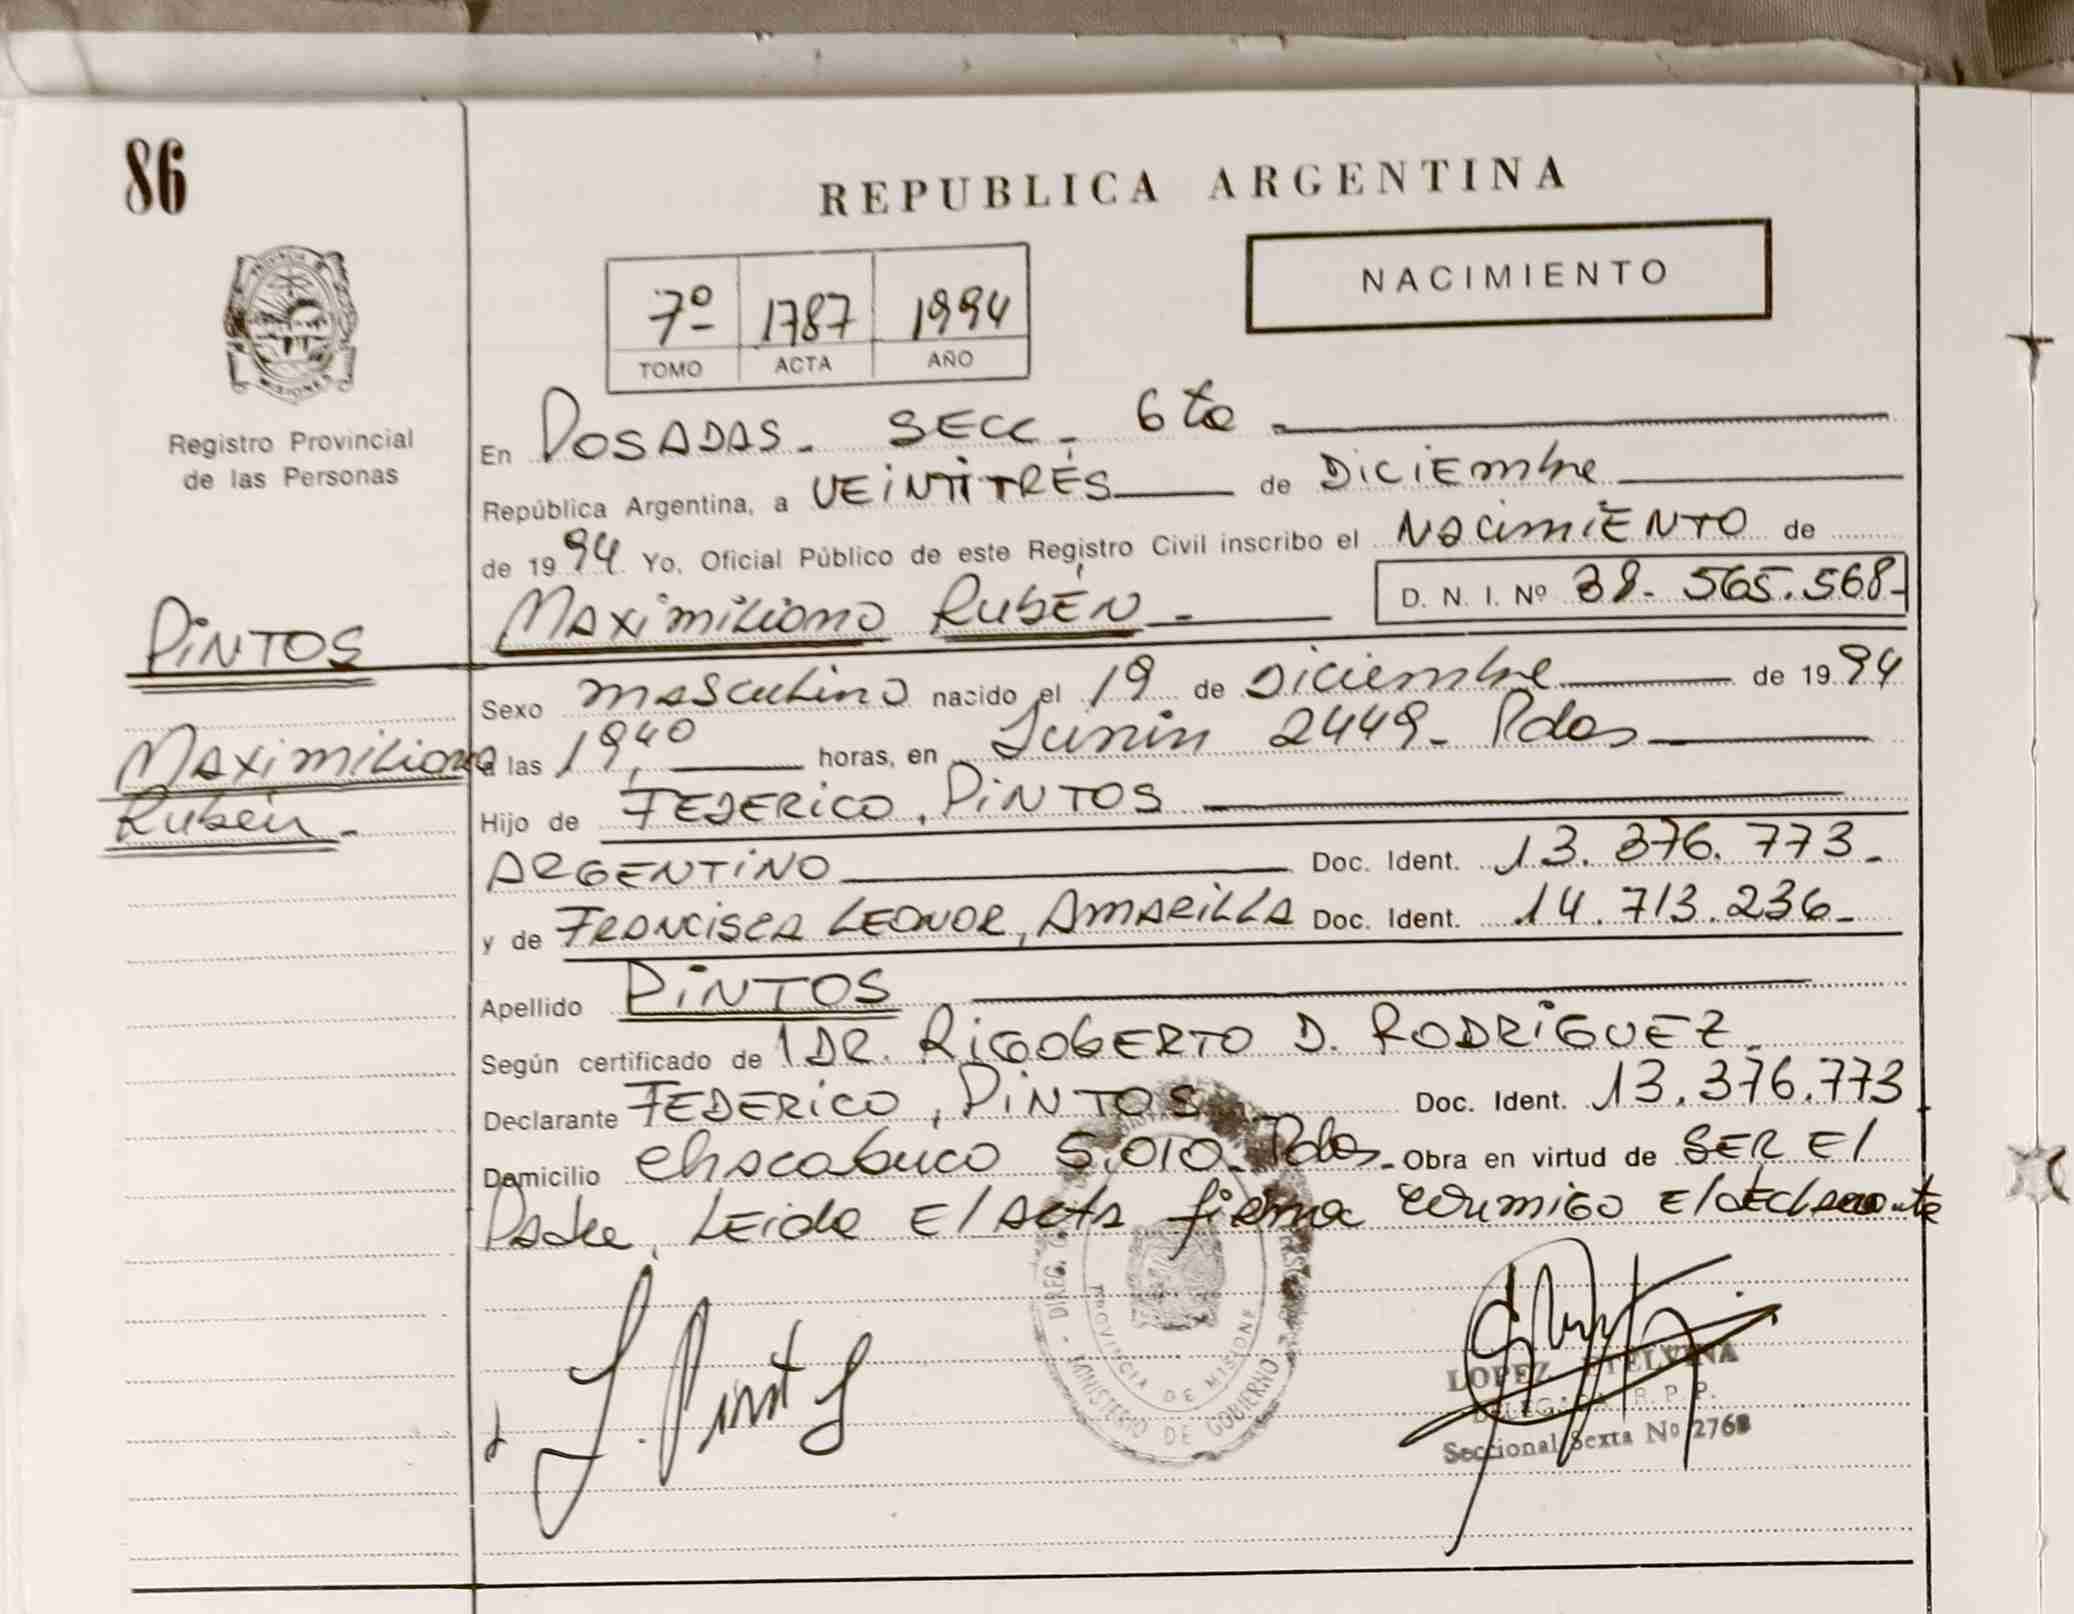 86
REPUBLICA ARGENTINA
NACIMIENTO
7º 1787 1994
TOMO ACTA AÑO
MISIONES
Registro Provincial
de las Personas
En POSADAS - SECC - 6ta
República Argentina, a VEINTITRÉS de DICIEMBRE
de 1994 Yo, Oficial Público de este Registro Civil inscribo el NACIMIENTO de
MAXIMILIANO RUBÉN - D. N. I. Nº 38.565.568-
PINTOS
Maximiliano
Rubén -
Sexo masculino nacido el 19 de Diciembre de 1994
a las 19,40 horas, en Junín 2449 - Pdas
Hijo de FEDERICO, PINTOS
ARGENTINO Doc. Ident. 13.376.773-
y de FRANCISCA LEONOR, AMARILLA Doc. Ident. 14.713.236-
Apellido PINTOS
Según certificado de 1 DR. RIGOBERTO D. RODRÍGUEZ
Declarante FEDERICO, PINTOS Doc. Ident. 13.376.773
Domicilio Chacabuco 5.010 - Pdas - Obra en virtud de SER El
Padre, Leida El acta firma conmigo El declarante
F. Pintos
PROVINCIA DE MISIONES
MINISTERIO DE GOBIERNO
LOPEZ ETELVINA
DELEGADA R. P. P.
Seccional Sexta Nº 2768